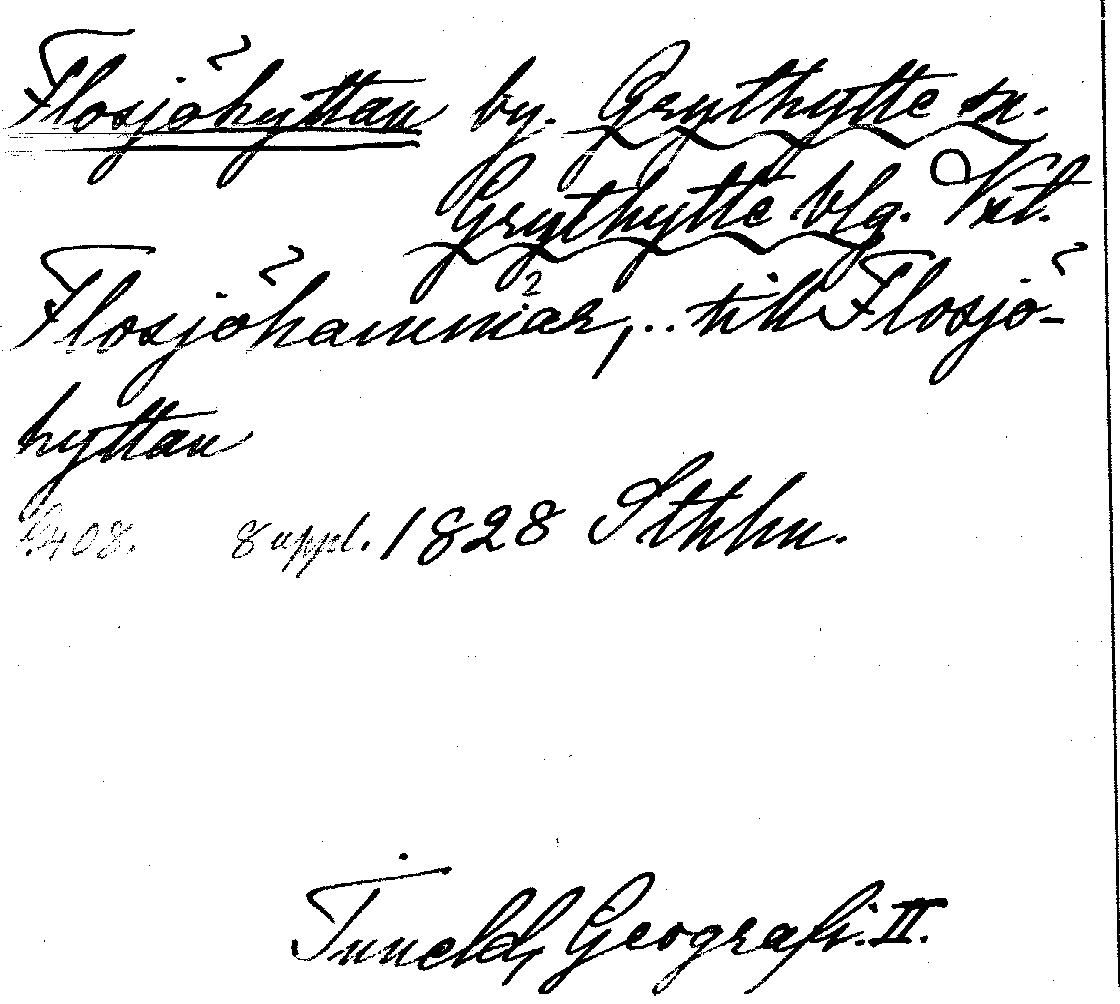 Flosjöhyttan by. Grythytte sn.
Grythytte blg. Vstl.
Flosjöhammar, .. till Flosjö-
hyttan
s. 408. 8 uppl. 1828 Sthlm.
Tuneld, Geografi. II.